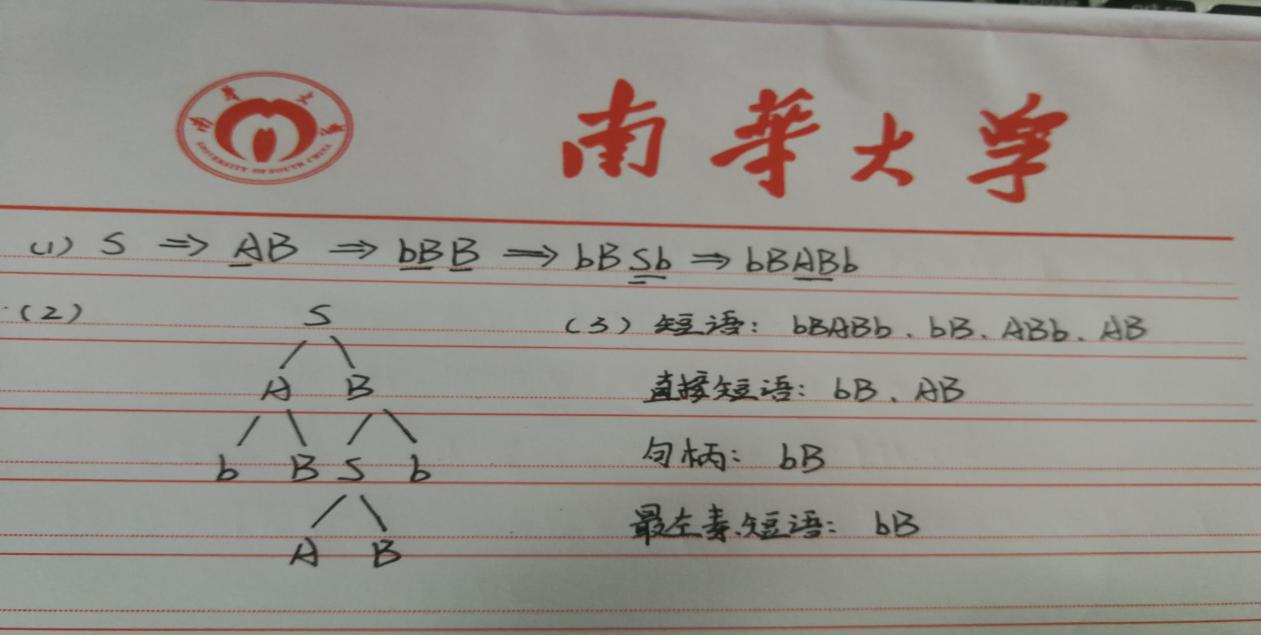 南华大学
UNIVERSITY OF SOUTH CHINA
(1) S ⇒ AB ⇒ bBB ⇒ bBSb ⇒ bBABb
(2)
S
A B
b B S b
A B
(3) 短语: bBABb、bB、ABb、AB
直接短语: bB、AB
句柄: bB
最左素短语: bB